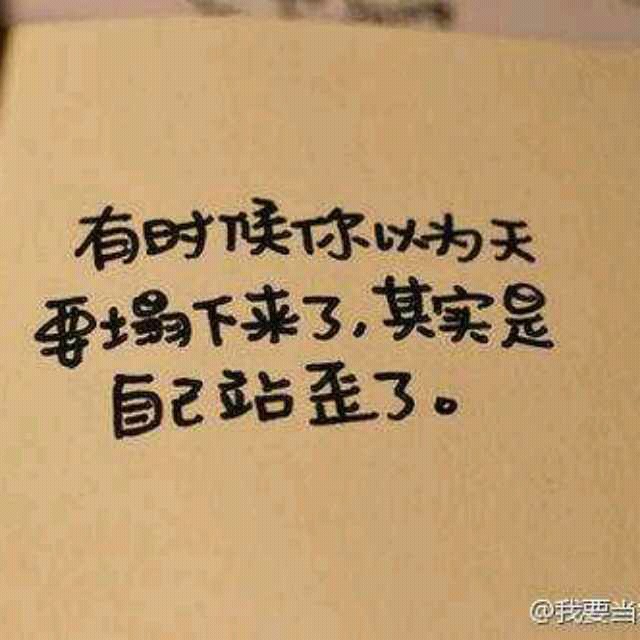 有时候你以为天
要塌下来了,其实是
自己站歪了。
@我要当